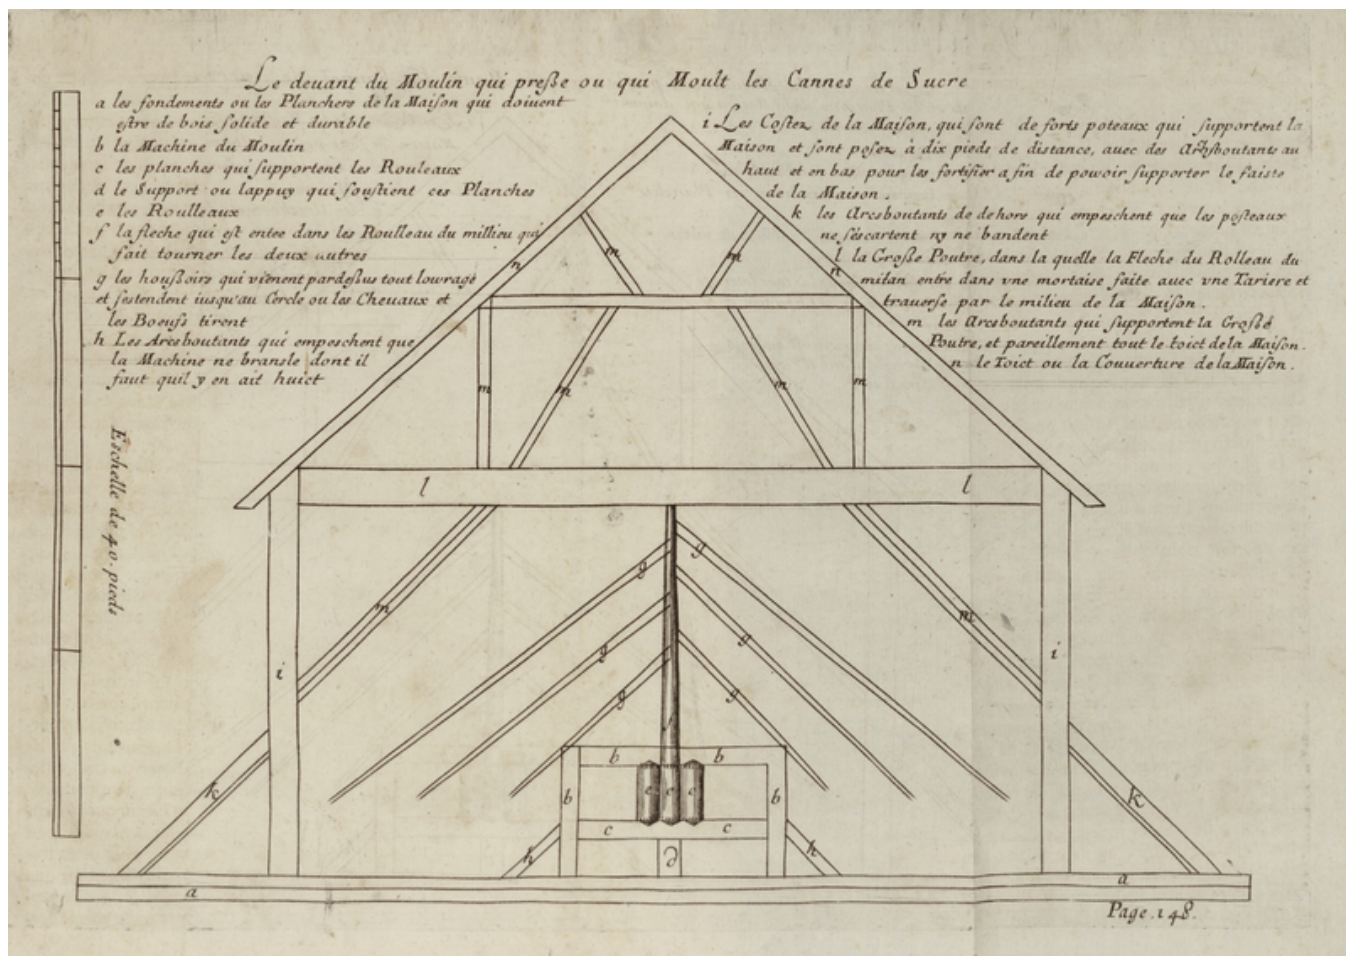 Le deuant du Moulin qui preſse ou qui Moult les Cannes de Sucre
a les fondements ou les Planchers de la Maiſon qui doiuent
eſtre de bois ſolide et durable
b la Machine du Moulin
c les planches qui ſupportent les Rouleaux
d le Support ou lappuy qui ſouſtient ces Planches
e les Roulleaux
f la fleche qui eſt entee dans les Roulleau du millieu qui
fait tourner les deux autres
g les houſsoirs qui vienent pardeſsus tout louurage
et ſestendent iusqu'au Cercle ou les Cheuaux et
les Boeufs tirent
h Les Arcsboutants qui empeschent que
la Machine ne bransle dont il
faut quil y en ait huict
i Les Costez de la Maiſon, qui ſont de forts poteaux qui ſupportent la
Maison et ſont poſez à dix pieds de distance, auec des Archsboutants au
haut et en bas pour les fortifier a fin de powoir ſupporter le faiste
de la Maison.
k les Arcsboutants de dehors qui empeschent que les poſteaux
ne ſéscartent ny ne bandent
l la Groſse Poutre, dans la quelle la Fleche du Rolleau du
milan entre dans vne mortaise faite auec vne Tariere et
trauerſe par le milieu de la Maiſon.
m les Arcsboutants qui ſupportent la Groſse
Poutre, et pareillement tout le toict de la Maiſon.
n le Toict ou la Couuerture de la Maiſon.
Eschelle de 40. pieds
m m
n n
m m m m
l l
m m
g g
g g
g g
i i
f
b b
k b e e e b k
c c
h d h
a a
Page. 148.